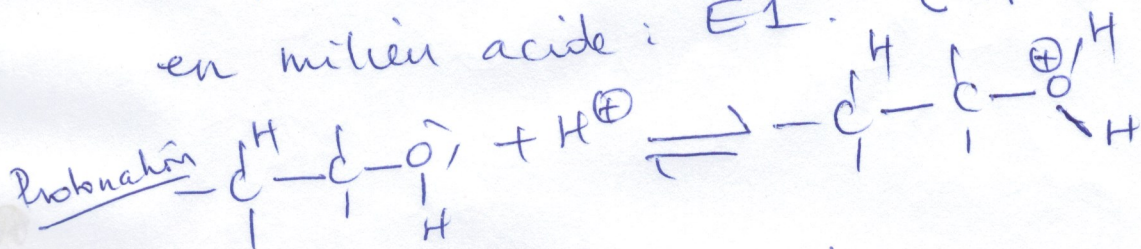 en milieu acide : E1.
Protonation -C(H)-C-O-H + H⊕ ⇌ -C(H)-C-O⊕(H)-H